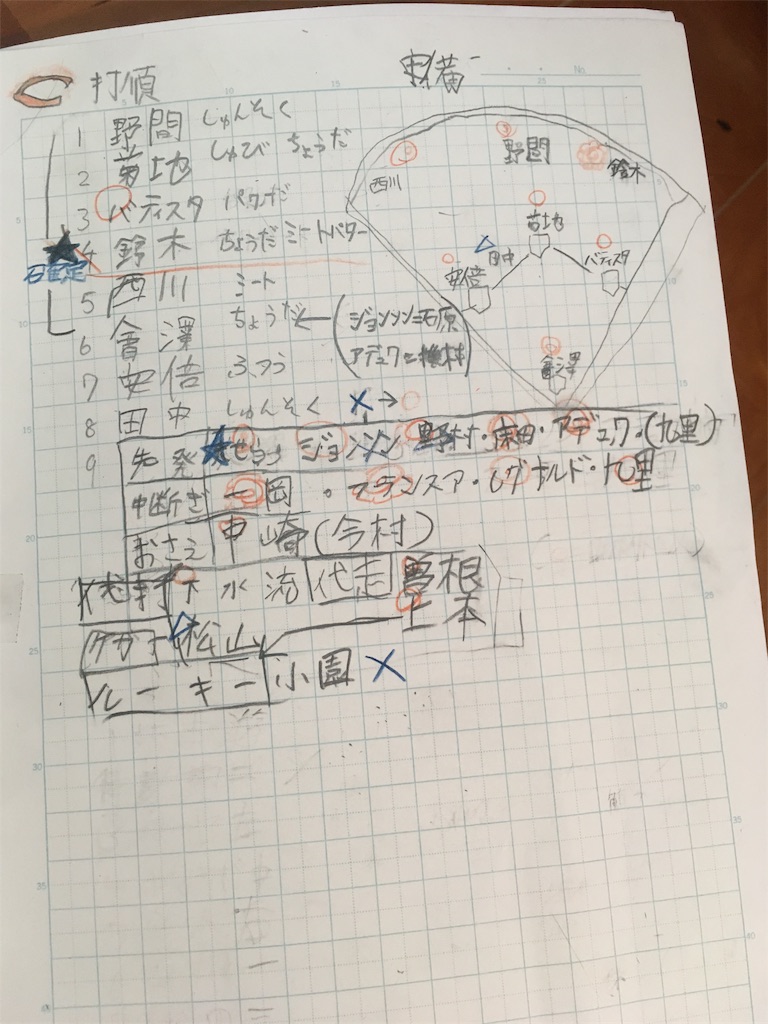 C 打順
1 野間 しゅんそく
2 菊地 しゅび ちょうだ
3 バティスタ パワーだ
4 鈴木 ちょうだ ミートバター
確定
5 西川 ミート
6 會澤 ちょうだ ← (ジョンソン=石原
アデュワ=磯村)
7 安倍 ふつう
8 田中 しゅんそく
9
守備
No.
西川 野間 鈴木
菊地
安倍 田中 バティスタ
會澤
先発 ジョンソン 野村・床田・アデュワ・(九里)
中断ぎ 一岡・フランスア・レグナルド・九里
おさえ 中崎(今村)
代打 下水流 代走 曽根
上本
ケガ 松山
ルーキー 小園 ×